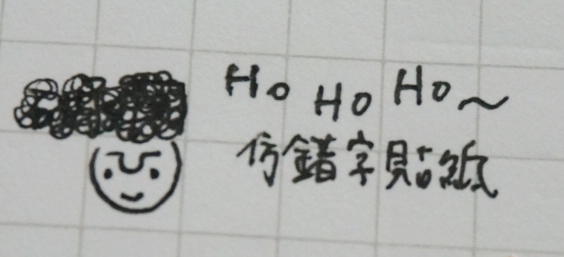 Ho Ho Ho~
仿錯字貼紙